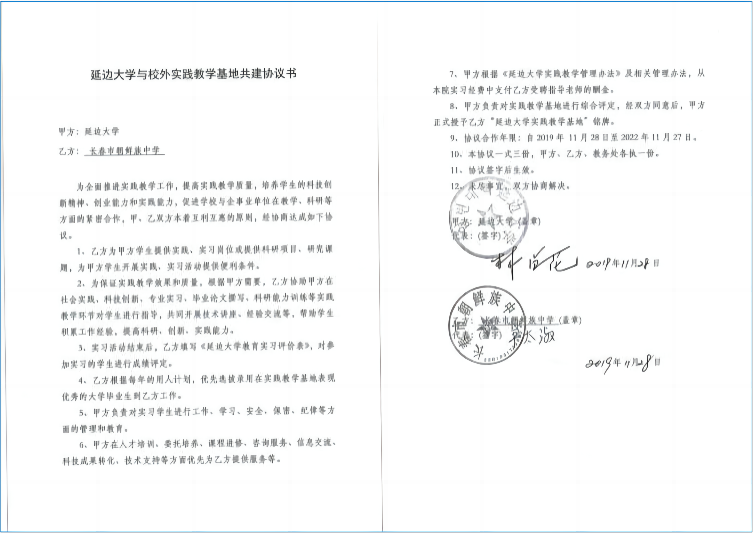 延边大学与校外实践教学基地共建协议书
甲方：延边大学
乙方：长春市朝鲜族中学
为全面推进实践教学工作，提高实践教学质量，培养学生的科技创
新精神、创业能力和实践能力，促进学校与企事业单位在教学、科研等
方面的紧密合作，甲、乙双方本着互利互惠的原则，经协商达成如下协
议。
1、乙方为甲方学生提供实践、实习岗位或提供科研项目、研究课
题，为甲方学生开展实践、实习活动提供便利条件。
2、为保证实践教学效果和质量，根据甲方需要，乙方协助甲方在
社会实践、科技创新、专业实习、毕业论文撰写、科研能力训练等实践
教学环节对学生进行指导，共同开展技术讲座、经验交流等，帮助学生
积累工作经验，提高科研、创新、实践能力。
3、实习活动结束后，乙方填写《延边大学教育实习评价表》，对参
加实习的学生进行成绩评定。
4、乙方根据每年的用人计划，优先选拔录用在实践教学基地表现
优秀的大学毕业生到乙方工作。
5、甲方负责对实习学生进行工作、学习、安全、保密、纪律等方
面的管理和教育。
6、甲方在人才培训、委托培养、课程进修、咨询服务、信息交流、
科技成果转化、技术支持等方面优先为乙方提供服务等。
7、甲方根据《延边大学实践教学管理办法》及相关管理办法，从
本院实习经费中支付乙方受聘指导老师的酬金。
8、甲方负责对实践教学基地进行综合评定，经双方同意后，甲方
正式授予乙方“延边大学实践教学基地”铭牌。
9、协议合作年限：自 2019 年 11 月 28 日至 2022 年 11 月 27 日。
10、本协议一式三份，甲方、乙方、教务处各执一份。
11、协议签字后生效。
12、未尽事宜，双方协商解决。
甲方：延边大学 (盖章)
代表：(签字)
2019 年 11 月 28 日
方：长春市朝鲜族中学 (盖章)
(签字)
2019 年 11 月 28 日